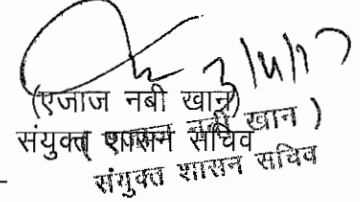 3/4/17
(एजाज नबी खान)
संयुक्त शासन सचिव
नबी खान )
संयुक्त शासन सचिव